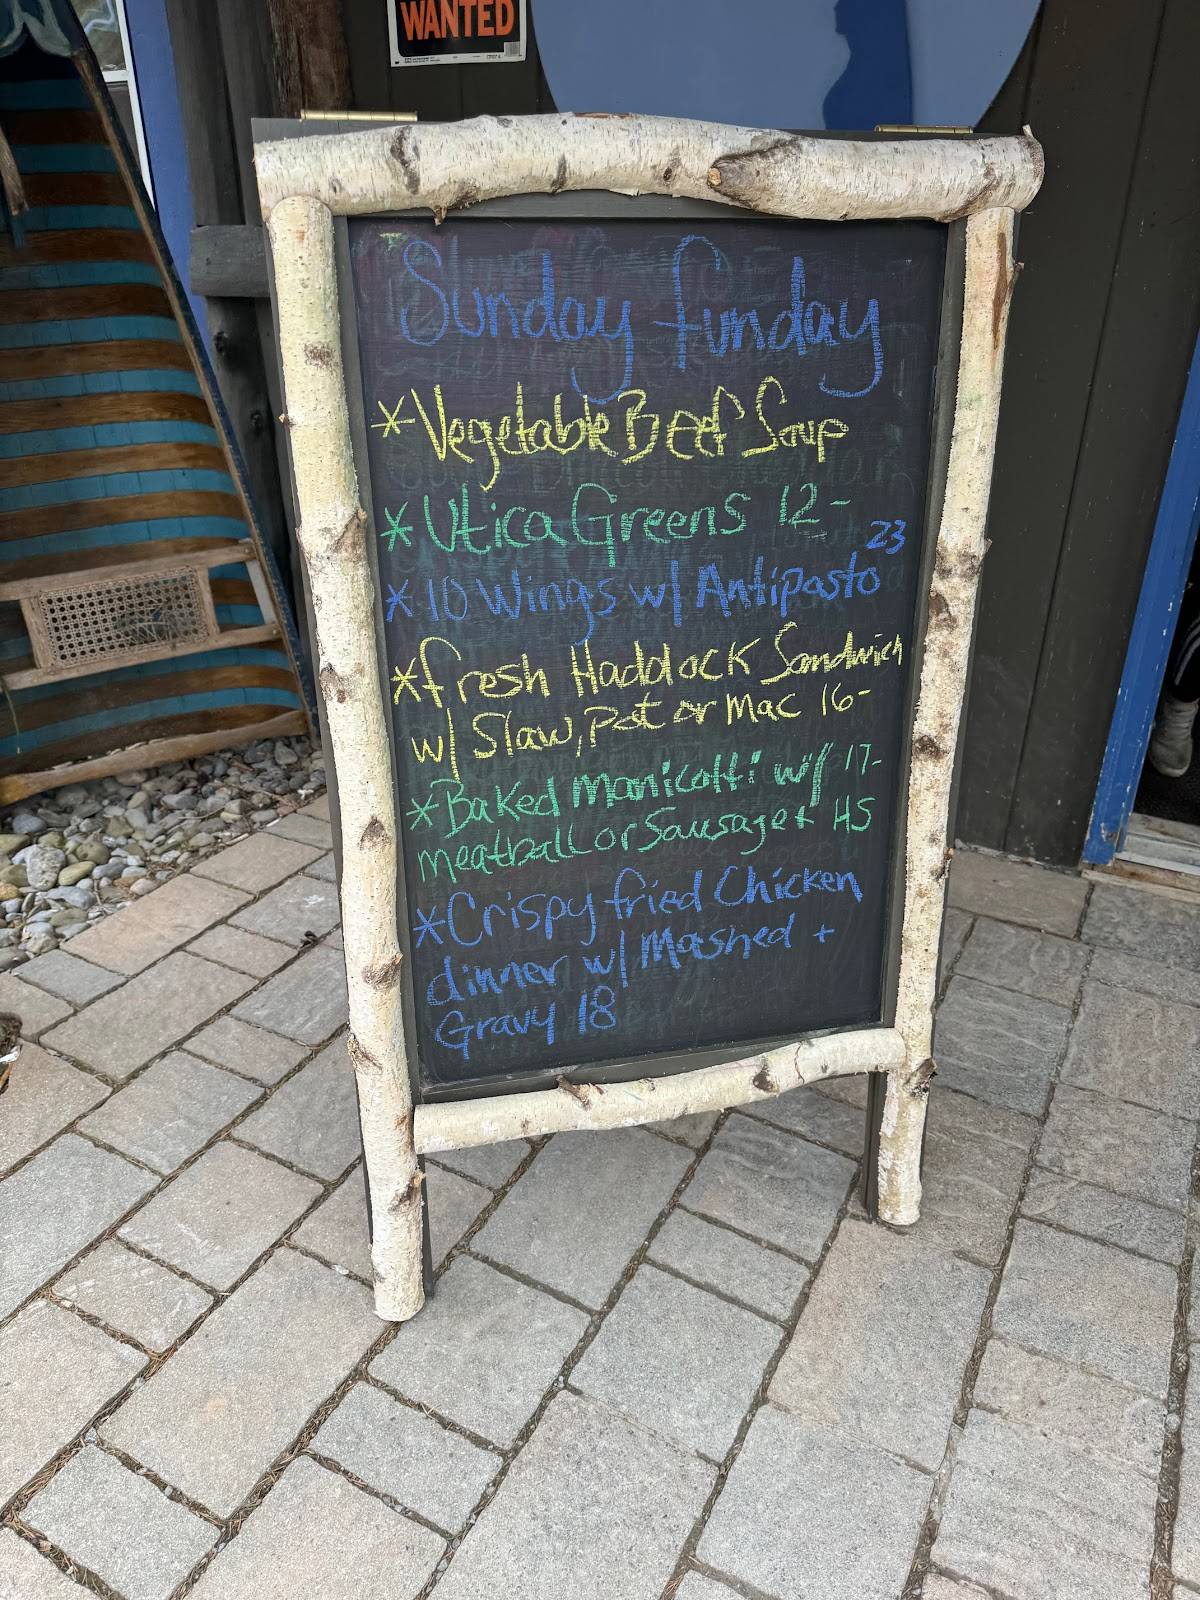 WANTED
Sunday funday
*Vegetable Beef Soup
*Utica Greens 12-
*10 Wings w/ Antipasto 23
*fresh Haddock Sandwich
w/ Slaw, Pot or Mac 16-
*Baked Manicotti w/ 17-
Meatball or Sausage + HS
*Crispy fried Chicken
dinner w/ Mashed +
Gravy 18